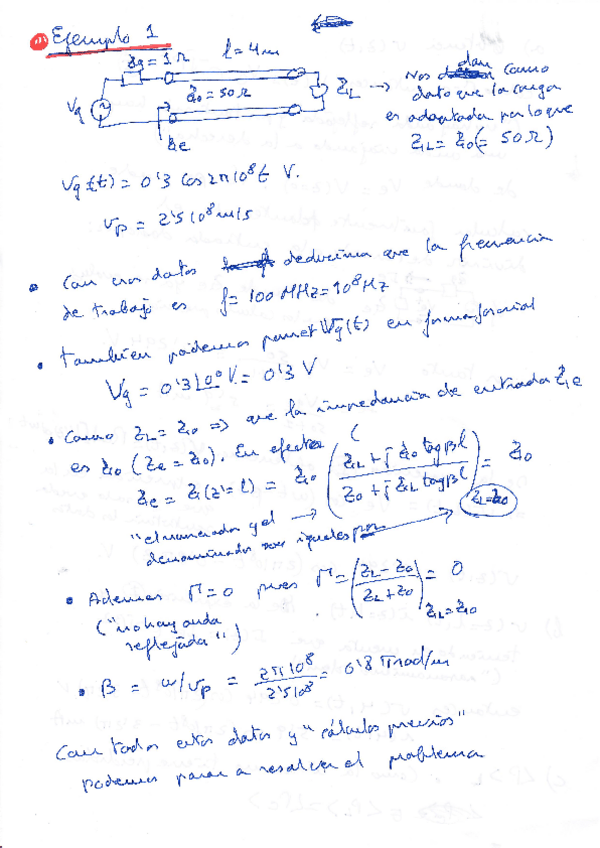 1) Ejemplo 1
Zg = 1Ω l = 4m
Vg Z0 = 50Ω ZL → Nos dan como
dato que la carga
es adaptada por lo que
ZL = Z0 (= 50Ω)
Ze
Vg(t) = 0'3 cos 2π10⁸t V.
vp = 2'5 10⁸ m/s
• Con esos datos deducimos que la frecuencia
de trabajo es f = 100 MHz = 10⁸ Hz
• También podemos poner Vg(t) en forma fasorial
Vg = 0'3 |0° V. = 0'3 V
• Como ZL = Z0 ⇒ que la impedancia de entrada Ze
es Z0 (Ze = Z0). En efecto (
Ze = Z(z'=l) = Z0 ( (ZL + j Z0 tagβl) / (Z0 + j ZL tagβl) ) = Z0
ZL = Z0
"el numerador y el →
denominador son iguales
• Además Γ = 0 pues Γ = ( (ZL − Z0) / (ZL + Z0) ) = 0
ZL = Z0
("no hay onda
reflejada")
• β = ω/vp = 2π10⁸ / 2'5 10⁸ = 0'8 π rad/m
Con todos estos datos y "cálculos previos"
podemos pasar a resolver el problema